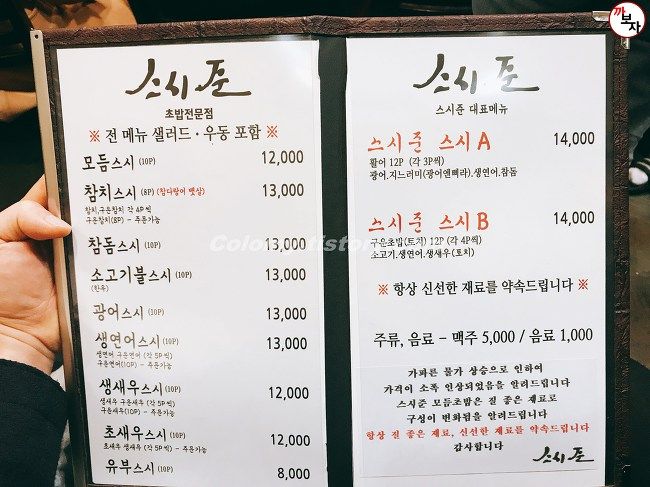 스시준
초밥전문점
※ 전 메뉴 샐러드·우동 포함 ※
모듬스시 (10P) 12,000
참치스시 (8P) (참다랑어 뱃살) 13,000
참치,구운참치 각 4P 씩
구운참치(8P) - 주문가능
참돔스시 (10P) 13,000
소고기불스시 (10P) 13,000
(한우)
광어스시 (10P) 13,000
생연어스시 (10P) 13,000
생연어 구운연어 (각 5P 씩)
구운연어(10P) - 주문가능
생새우스시 (10P) 12,000
생새우 구운새우 (각 5P 씩)
구운새우(10P) - 주문가능
초새우스시 (10P) 12,000
초새우 생새우 (각 5P 씩) - 주문가능
유부스시 (10P) 8,000
스시준
스시준 대표메뉴
스시준 스시 A 14,000
활어 12P (각 3P씩)
광어.지느러미(광어엔삐라).생연어.참돔
스시준 스시 B 14,000
구운초밥(토치) 12P (각 4P씩)
소고기.생연어.생새우(토치)
※ 항상 신선한 재료를 약속드립니다 ※
주류, 음료 - 맥주 5,000 / 음료 1,000
가파른 물가 상승으로 인하여
가격이 소폭 인상되었음을 알려드립니다
스시준 모듬초밥은 질 좋은 재료로
구성이 변화됨을 알려드립니다
항상 질 좋은 재료, 신선한 재료를 약속드립니다
감사합니다
스시준
까보자